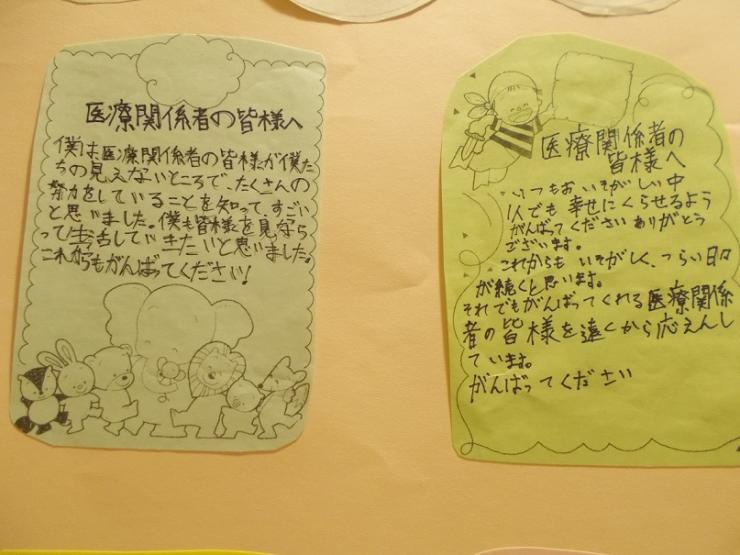 医療関係者の皆様へ
僕は医療関係者の皆様が僕た
ちの見えないところで、たくさんの
努力をしていることを知って、すごい
と思いました。僕も皆様を見守ら
って生活していきたいと思いました。
これからもがんばってください!
医療関係者の
皆様へ
いつもおいそがしい中
1人でも幸せにくらせるよう
がんばってくださいありがとう
ございます。
これからもいそがしく、つらい日々
が続くと思います。
それでもがんばってくれる医療関係
者の皆様を遠くから応えんし
ています。
がんばってください